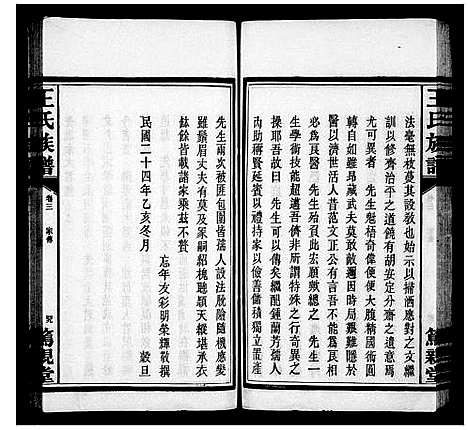 王氏族譜
法毫無枝蔓其設教也始示以掃洒應對之文繼
訓以修齊治平之道饒有胡安定分齋之遺意焉
尤可異者　先生魁梧奇偉便便大腹精國術而
轉自如雖昂藏武夫莫敢敵邇因時局艱難隱於
醫以濟世活人昔范文正公有言吾不能為良相
必為良醫　先生其此宏願歟總之　先生一
生學術技能超邁吾儕非所謂特殊之行奇異之
操耶吾故曰　先生可以傳矣繼配鍾蘭芳孺人
內助蔣賢延賓以禮持家以儉善儲積獨立置產
篤親堂
先生兩次被匪包圍皆孺人設法脫險隨機應變
雖鬚眉丈夫有莫及焉冢嗣紹槐聰穎天縱堪承衣
鉢餘皆載諸家乘茲不贅
民國二十四年乙亥冬月
忘年友彩明榮輝敬撰　穀旦
王氏族譜
卷三　家傳
篤親堂